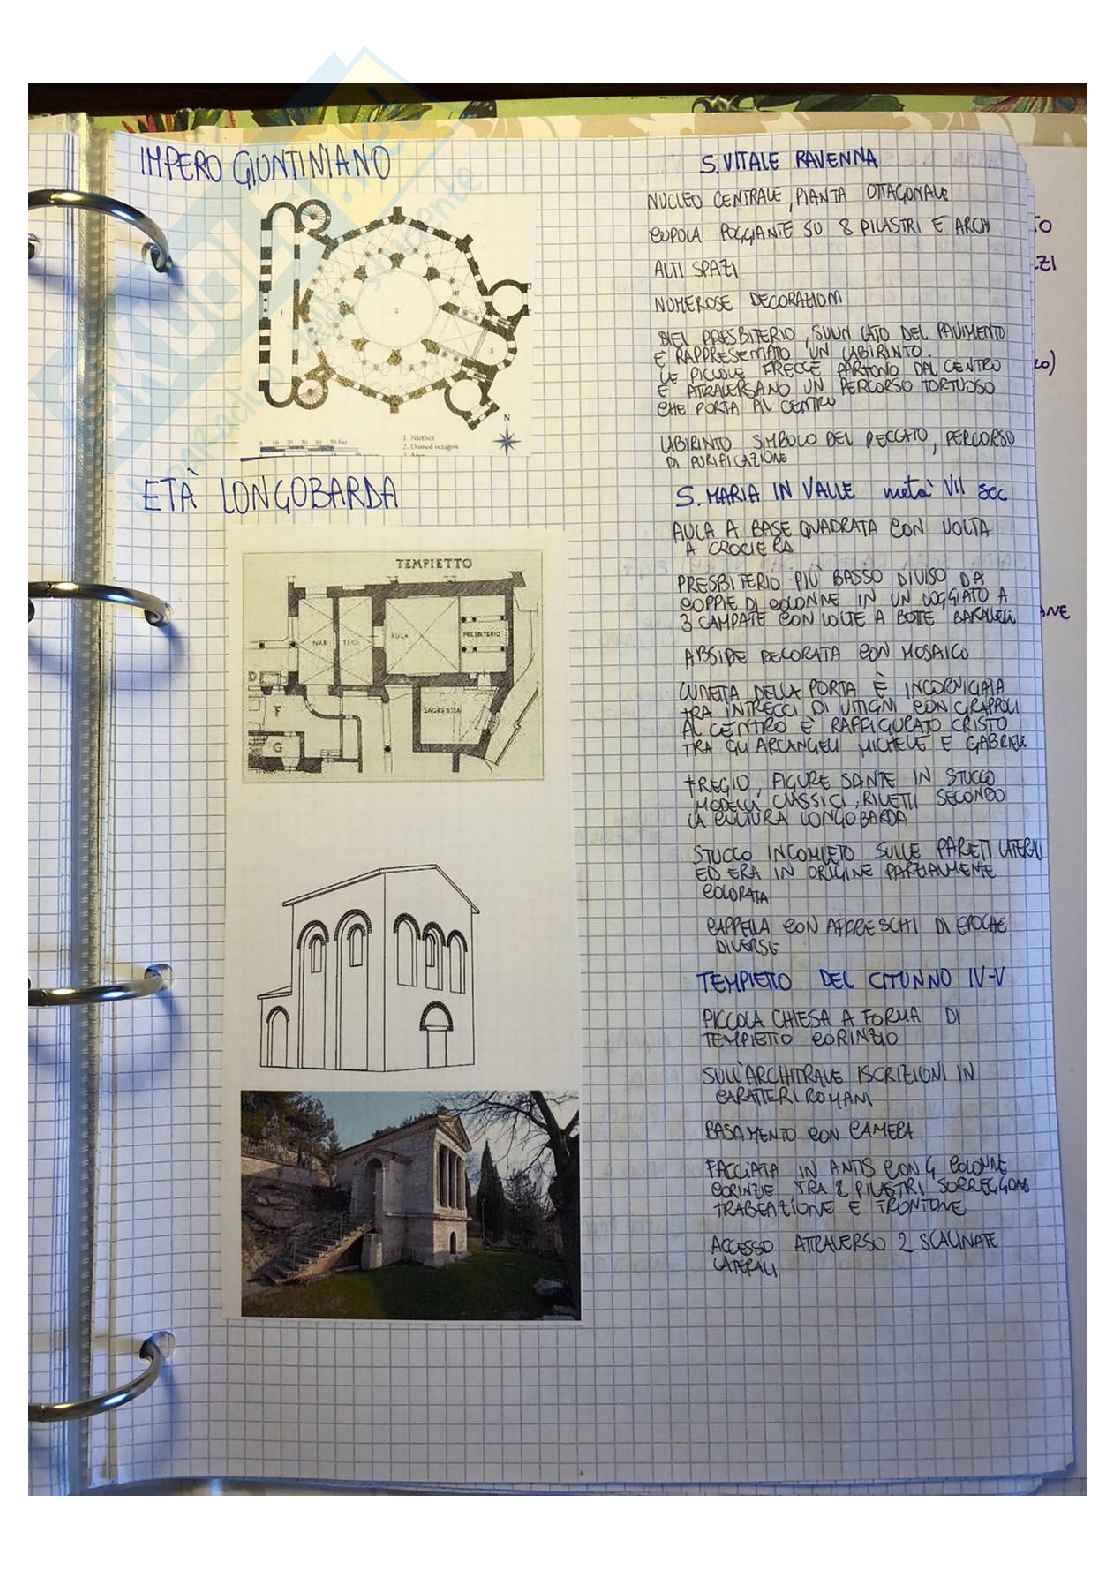 IMPERO GIUNTINIANO
S. VITALE RAVENNA
NUCLEO CENTRALE, PIANTA OTTAGONALE
CUPOLA POGGIANTE SU 8 PILASTRI E ARCHI
ALTI SPAZI
NUMEROSE DECORAZIONI
NEL PRESBITERIO, SU UN LATO DEL PAVIMENTO
E RAPPRESENTATO UN LABIRINTO.
LE PICCOLE FRECCE PARTONO DAL CENTRO
E ATRAVERSANO UN PERCORSO TORTUOSO
CHE PORTA AL CENTRO
LABIRINTO SIMBOLO DEL PECCATO, PERCORSO
DI PURIFICAZIONE
1. Narthex
2. Domed octagon
N
ETÀ LONGOBARDA
S. MARIA IN VALLE metà VII sec
AULA A BASE QUADRATA CON VOLTA
A CROCIERA
PRESBITERIO PIÙ BASSO DIVISO DA
COPPIE DI COLONNE IN UN LOGGIATO A
3 CAMPATE CON VOLTE A BOTTE PARALLELE
ABSIDE DECORATA CON MOSAICO
LUNETTA DELLA PORTA È INCORNICIATA
TRA INTRECCI DI VITIGNI CON GRAPPOLI
AL CENTRO È RAFFIGURATO CRISTO
TRA GLI ARCANGELI MICHELE E GABRIELE
FREGIO, FIGURE SANTE IN STUCCO
MODELLI CLASSICI, RILETTI SECONDO
LA CULTURA LONGOBARDA
STUCCO INCOMLETO SULLE PARETI LATERALI
ED ERA IN ORIGINE PARZIALMENTE
COLORATA
CAPPELLA CON AFFRESCHI DI EPOCHE
DIVERSE
TEMPIETTO
NAR
TECE
AULA
PRESBITERIO
SAGRESTIA
D
F
G
TEMPIETTO DEL CITUNNO IV-V
PICCOLA CHIESA A FORMA DI
TEMPIETTO CORINZIO
SULL'ARCHITRAVE ISCRIZIONI IN
CARATTERI ROMANI
BASAMENTO CON CAMERA
FACCIATA IN ANTIS CON 4 COLONNE
CORINZIE TRA 2 PILASTRI SORREGGONO
TRABEAZIONE E FRONTONE
ACCESSO ATTRAVERSO 2 SCALINATE
LATERALI